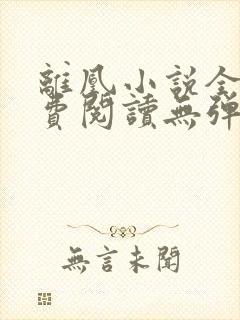 離凰小說全
費閱讀無彈
無言未聞